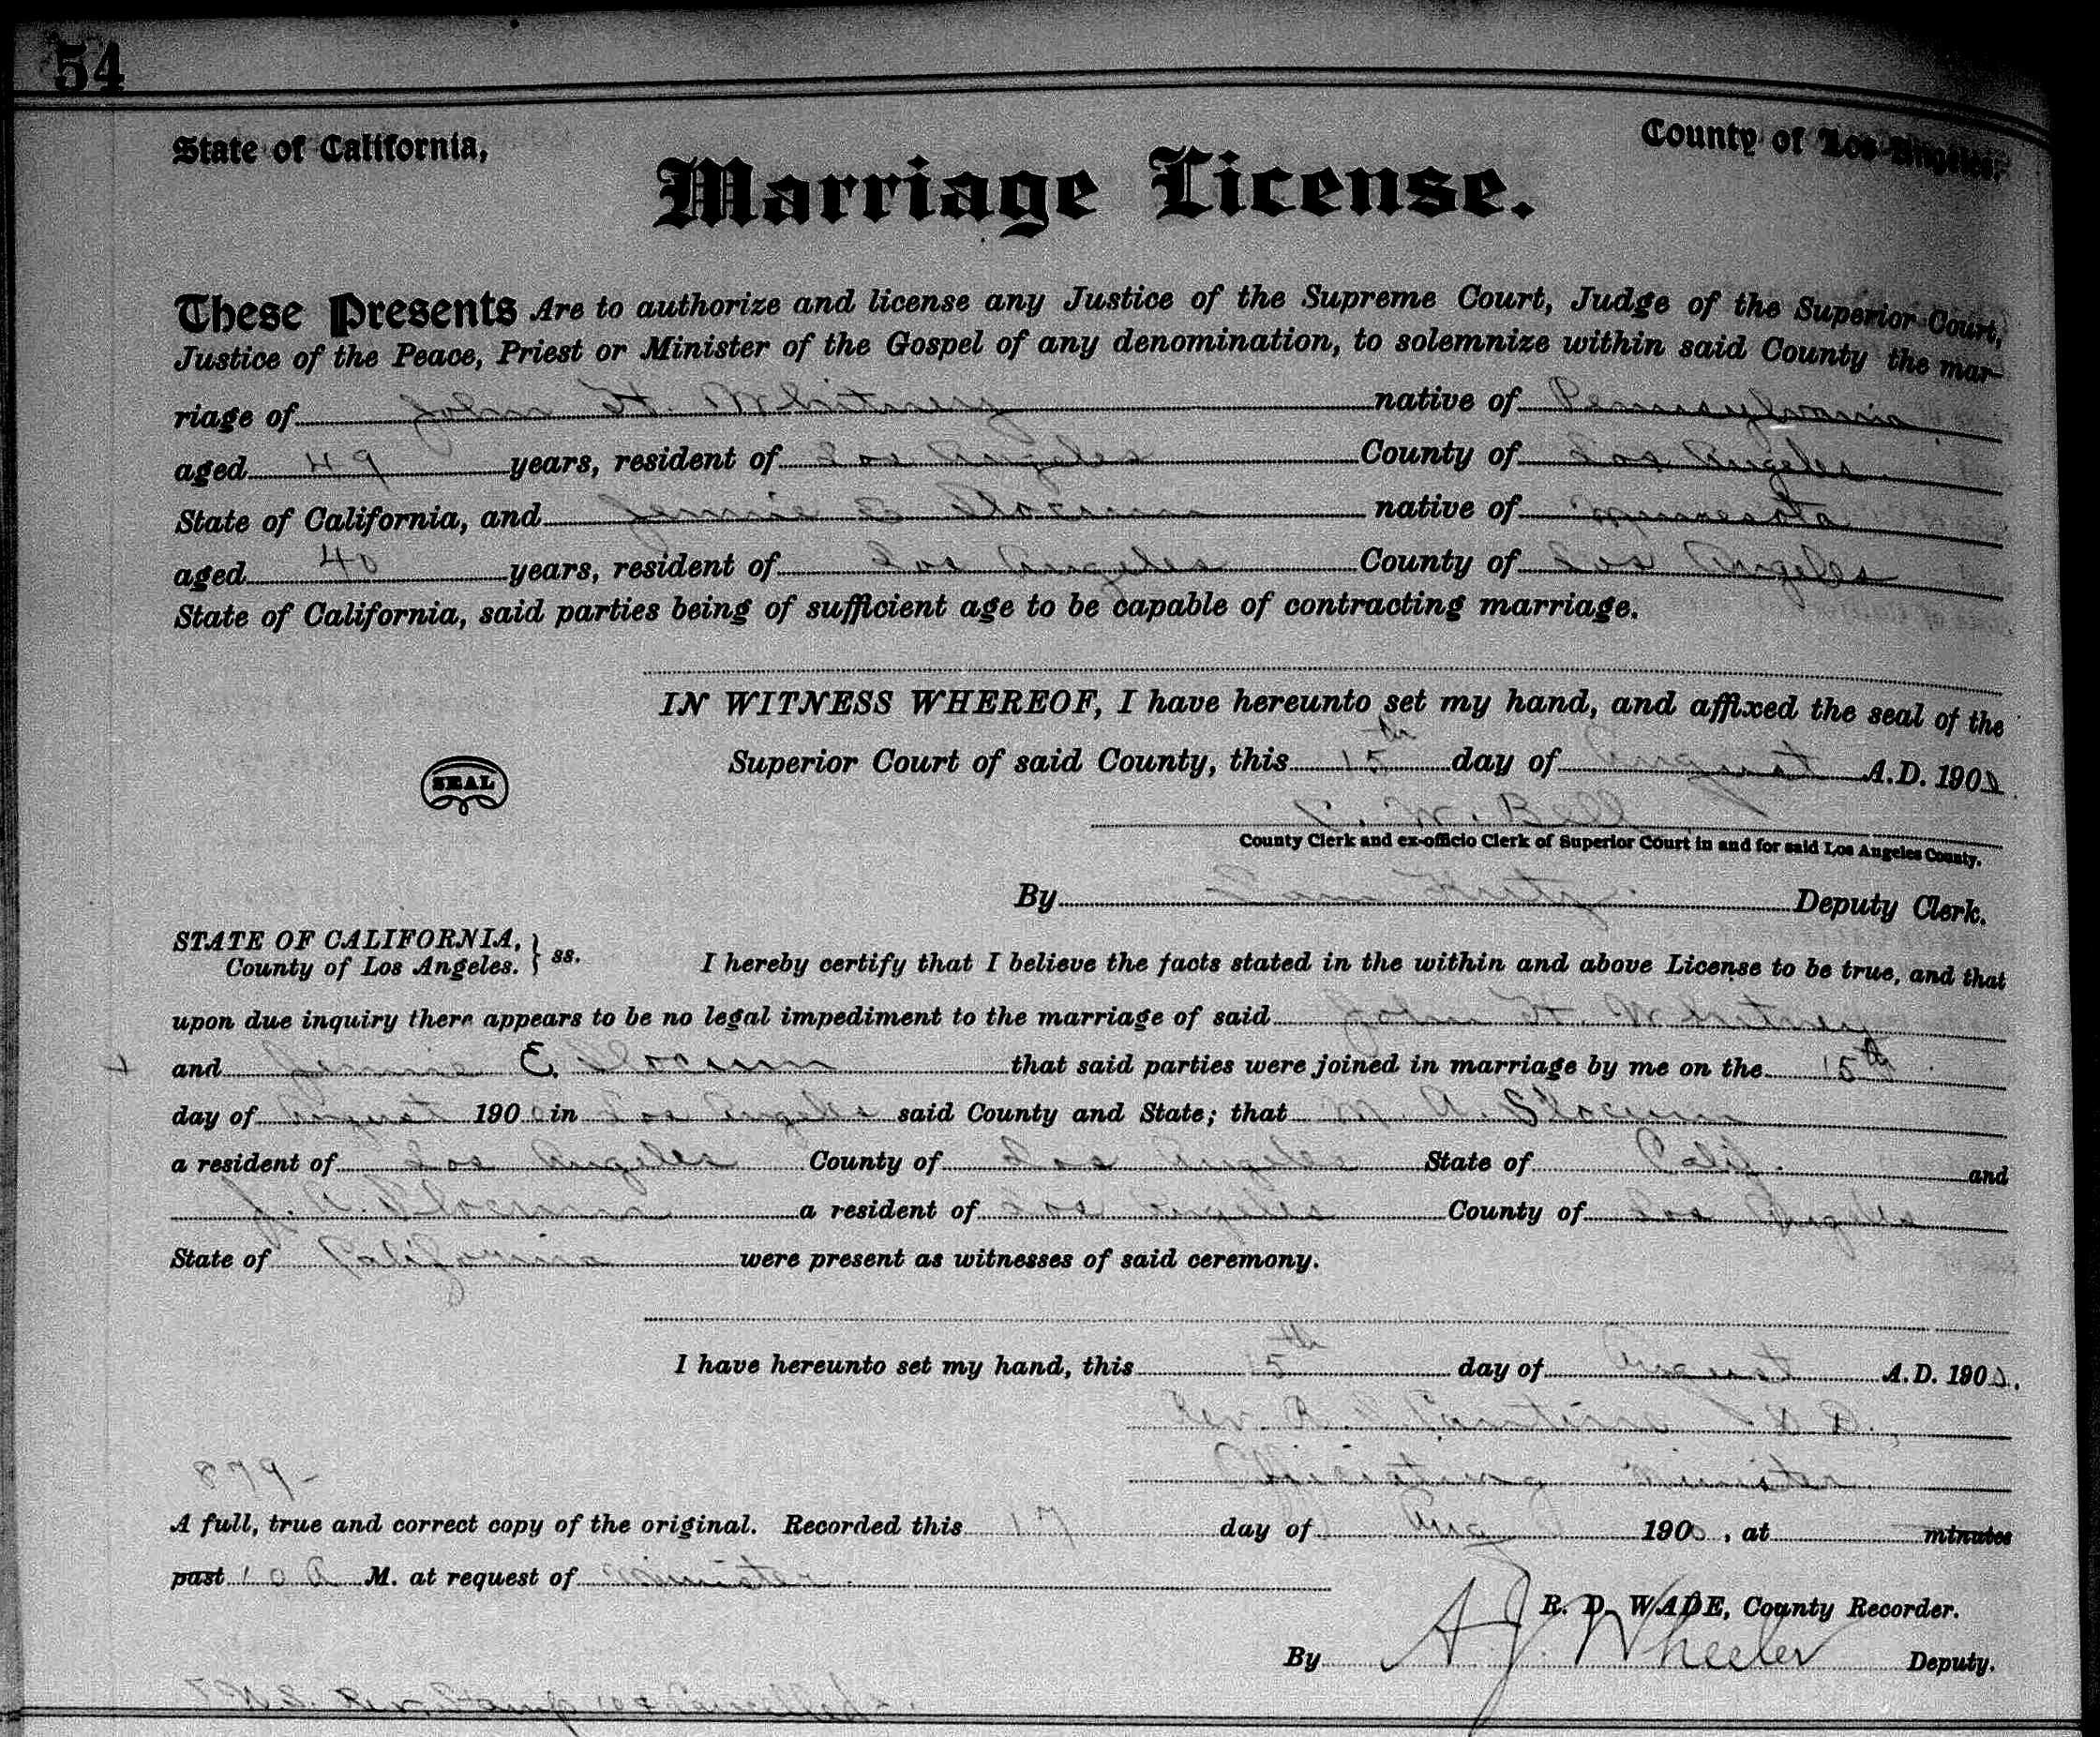 54
State of California, County of Los Angeles.
Marriage License.
These Presents Are to authorize and license any Justice of the Supreme Court, Judge of the Superior Court,
Justice of the Peace, Priest or Minister of the Gospel of any denomination, to solemnize within said County the mar-
riage of John K. Whitney native of Pennsylvania
aged 49 years, resident of Los Angeles County of Los Angeles
State of California, and Jennie E Slocum native of Minnesota
aged 40 years, resident of Los Angeles County of Los Angeles
State of California, said parties being of sufficient age to be capable of contracting marriage.
IN WITNESS WHEREOF, I have hereunto set my hand, and affixed the seal of the
SEAL
Superior Court of said County, this 15th day of August A.D. 1900.
County Clerk and ex-officio Clerk of Superior Court in and for said Los Angeles County.
By Deputy Clerk.
STATE OF CALIFORNIA,
County of Los Angeles. } ss. I hereby certify that I believe the facts stated in the within and above License to be true, and that
upon due inquiry there appears to be no legal impediment to the marriage of said John K. Whitney
and Jennie E. Slocum that said parties were joined in marriage by me on the 15th
day of August 1900 in Los Angeles said County and State; that W. A. Slocum
a resident of Los Angeles County of Los Angeles State of Calif. and
J. A. Slocum a resident of Los Angeles County of Los Angeles
State of California were present as witnesses of said ceremony.
I have hereunto set my hand, this 15th day of August A.D. 1900.
Rev.
Officiating Minister
879-
A full, true and correct copy of the original. Recorded this 17 day of Aug 1900, at minutes
past 10 A M. at request of Minister.
R. D. WADE, County Recorder.
By A J Wheeler Deputy.
Rev Stamp 10¢ Cancelled